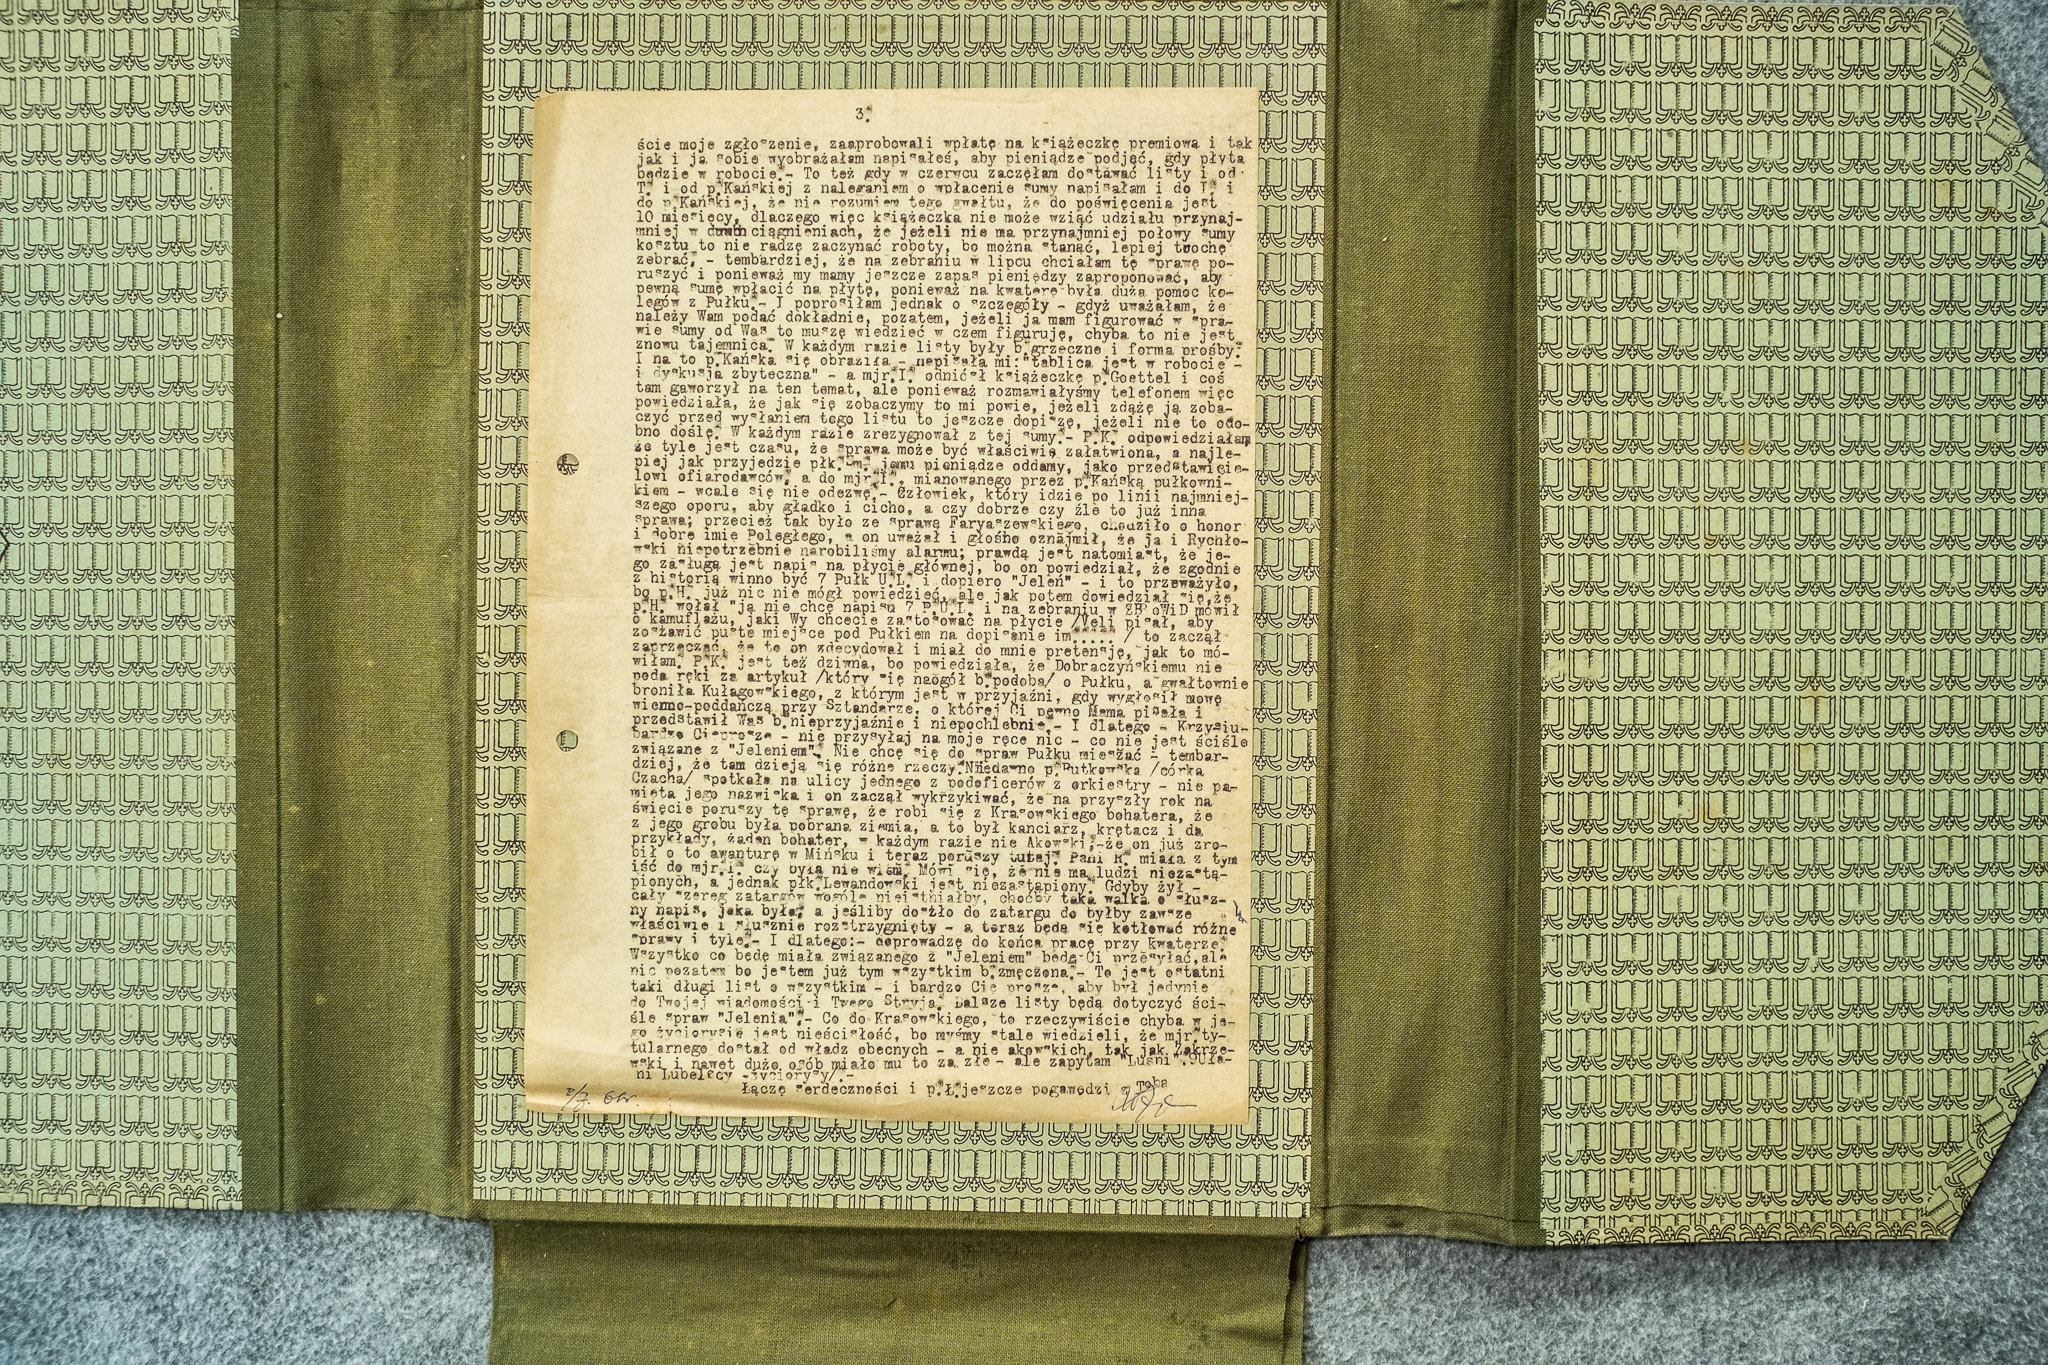 3.
ście moje zgłoszenie, zaaprobowali wpłatę na książeczkę premiową i tak
jak i ja sobie wyobrażałam napisałeś, aby pieniądze podjąć, gdy płyta
będzie w robocie.- To też gdy w czerwcu zaczęłam dostawać listy i od
T. i od p.Kańskiej z naleganiem o wpłacenie sumy napisałam i do I. i
do p.Kańskiej, że nie rozumiem tego gwałtu, że do poświęcenia jest
10 miesięcy, dlaczego więc książeczka nie może wziąć udziału przynaj-
mniej w dwóch ciągnieniach, że jeżeli nie ma przynajmniej połowy sumy
kosztu to nie radzę zaczynać roboty, bo można stanąć, lepiej trochę
zebrać, - tembardziej, że na zebraniu w lipcu chciałam tę sprawę po-
ruszyć i ponieważ my mamy jeszcze zapas pieniędzy zaproponować, aby
pewną sumę wpłacić na płytę, ponieważ na kwaterę była duża pomoc ko-
legów z Pułku.- I poprosiłam jednak o szczegóły - gdyż uważałam, że
należy Wam podać dokładnie, pozatem, jeżeli ja mam figurować w spra-
wie sumy od Was to muszę wiedzieć w czem figuruję, chyba to nie jest
znowu tajemnica. W każdym razie listy były b.grzeczne i forma prośby.
I na to p.Kańska się obraziła - napisała mi:"tablica jest w robocie -
i dyskusja zbyteczna" - a mjr.I. odniósł książeczkę p.Goettel i coś
tam gaworzył na ten temat, ale ponieważ rozmawiałyśmy telefonem więc
powiedziała, że jak się zobaczymy to mi powie, jeżeli zdążę ją zoba-
czyć przed wysłaniem tego listu to jeszcze dopiszę, jeżeli nie to odo-
bno doślę. W każdym razie zrezygnował z tej sumy.- P.K. odpowiedziałam
że tyle jest czasu, że sprawa może być właściwie załatwiona, a najle-
piej jak przyjedzie płk. jemu pieniądze oddamy, jako przedstawicie-
lowi ofiarodawców, a do mjr.I., mianowanego przez p.Kańską pułkowni-
kiem - wcale się nie odezwę.- Człowiek, który idzie po linii najmniej-
szego oporu, aby gładko i cicho, a czy dobrze czy źle to już inna
sprawa; przecież tak było ze sprawą Faryaszewskiego, chodziło o honor
i dobre imię Poległego, a on uważał i głośno oznajmił, że ja i Rychło-
wski niepotrzebnie narobiliśmy alarmu; prawdą jest natomiast, że je-
go zasługą jest napis na płycie głównej, bo on powiedział, że zgodnie
z historią winno być 7 Pułk U.L. i dopiero "Jeleń" - i to przeważyło,
bo p.H. już nic nie mógł powiedzieć, ale jak potem dowiedział się,że
p.H. wołał "ja nie chcę napisu 7 P.U.L. i na zebraniu w ZBOWiD mówił
o kamuflażu, jaki Wy chcecie zastosować na płycie /Veli pisał, aby
zostawić puste miejsce pod Pułkiem na dopisanie im...../ to zaczął
zaprzeczać, że to on zdecydował i miał do mnie pretensję, jak to mó-
wiłam. P.K. jest też dziwna, bo powiedziała, że Dobraczyńskiemu nie
poda ręki za artykuł /który się naogół b.podoba/ o Pułku, a gwałtownie
broniła Kułagowskiego, z którym jest w przyjaźni, gdy wygłosił mowę
wierno-poddańczą przy Sztandarze, o której Ci pewno Mama pisała i
przedstawił Was b.nieprzyjaźnie i niepochlebnie.- I dlatego - Krzysiu-
bardzo Cię proszę - nie przysyłaj na moje ręce nic - co nie jest ściśle
związane z "Jeleniem". Nie chcę się do spraw Pułku mieszać - tembar-
dziej, że tam dzieją się różne rzeczy.Niedawno p.Rutkowska /córka
Czacha/ spotkała na ulicy jednego z podoficerów z orkiestry - nie pa-
mięta jego nazwiska i on zaczął wykrzykiwać, że na przyszły rok na
święcie poruszy tę sprawę, że robi się z Krasowskiego bohatera, że
z jego grobu była pobrana ziemia, a to był kanciarz, krętacz i da
przykłady, żaden bohater, w każdym razie nie Akowski,-że on już zro-
bił o to awanturę w Mińsku i teraz poruszy tutaj. Pani R. miała z tym
iść do mjr.I. czy była nie wiem. Mówi się, że nie ma ludzi niezastą-
pionych, a jednak płk.Lewandowski jest niezastąpiony. Gdyby żył -
cały szereg zatargów wogóle nieistniałby, choćby taka walka o słusz-
ny napis, jaka była, a jeśliby doszło do zatargu do byłby zawsze
właściwie i słusznie rozstrzygnięty - a teraz będą się kotłować różne
sprawy i tyle.- I dlatego:- doprowadzę do końca pracę przy kwaterze.
Wszystko co będę miała związanego z "Jeleniem" będę Ci przesyłać,ale
nic pozatem bo jestem już tym wszystkim b.zmęczona.- To jest ostatni
taki długi list o wszystkim - i bardzo Cię proszę, aby był jedynie
do Twojej wiadomości i Twego Stryja. Dalsze listy będą dotyczyć ści-
śle spraw "Jelenia".- Co do Krasowskiego, to rzeczywiście chyba w je-
go życiorysie jest nieścisłość, bo myśmy stale wiedzieli, że mjr.ty-
tularnego dostał od władz obecnych - a nie akowskich, tak jak Zakrze-
wski i nawet dużo osób miało mu to za złe - ale zapytam "Luśni".
ni Lubelscy -życiorysy/.-
Łączę serdeczności i p.Ł.jeszcze pogawędzi z Tobą